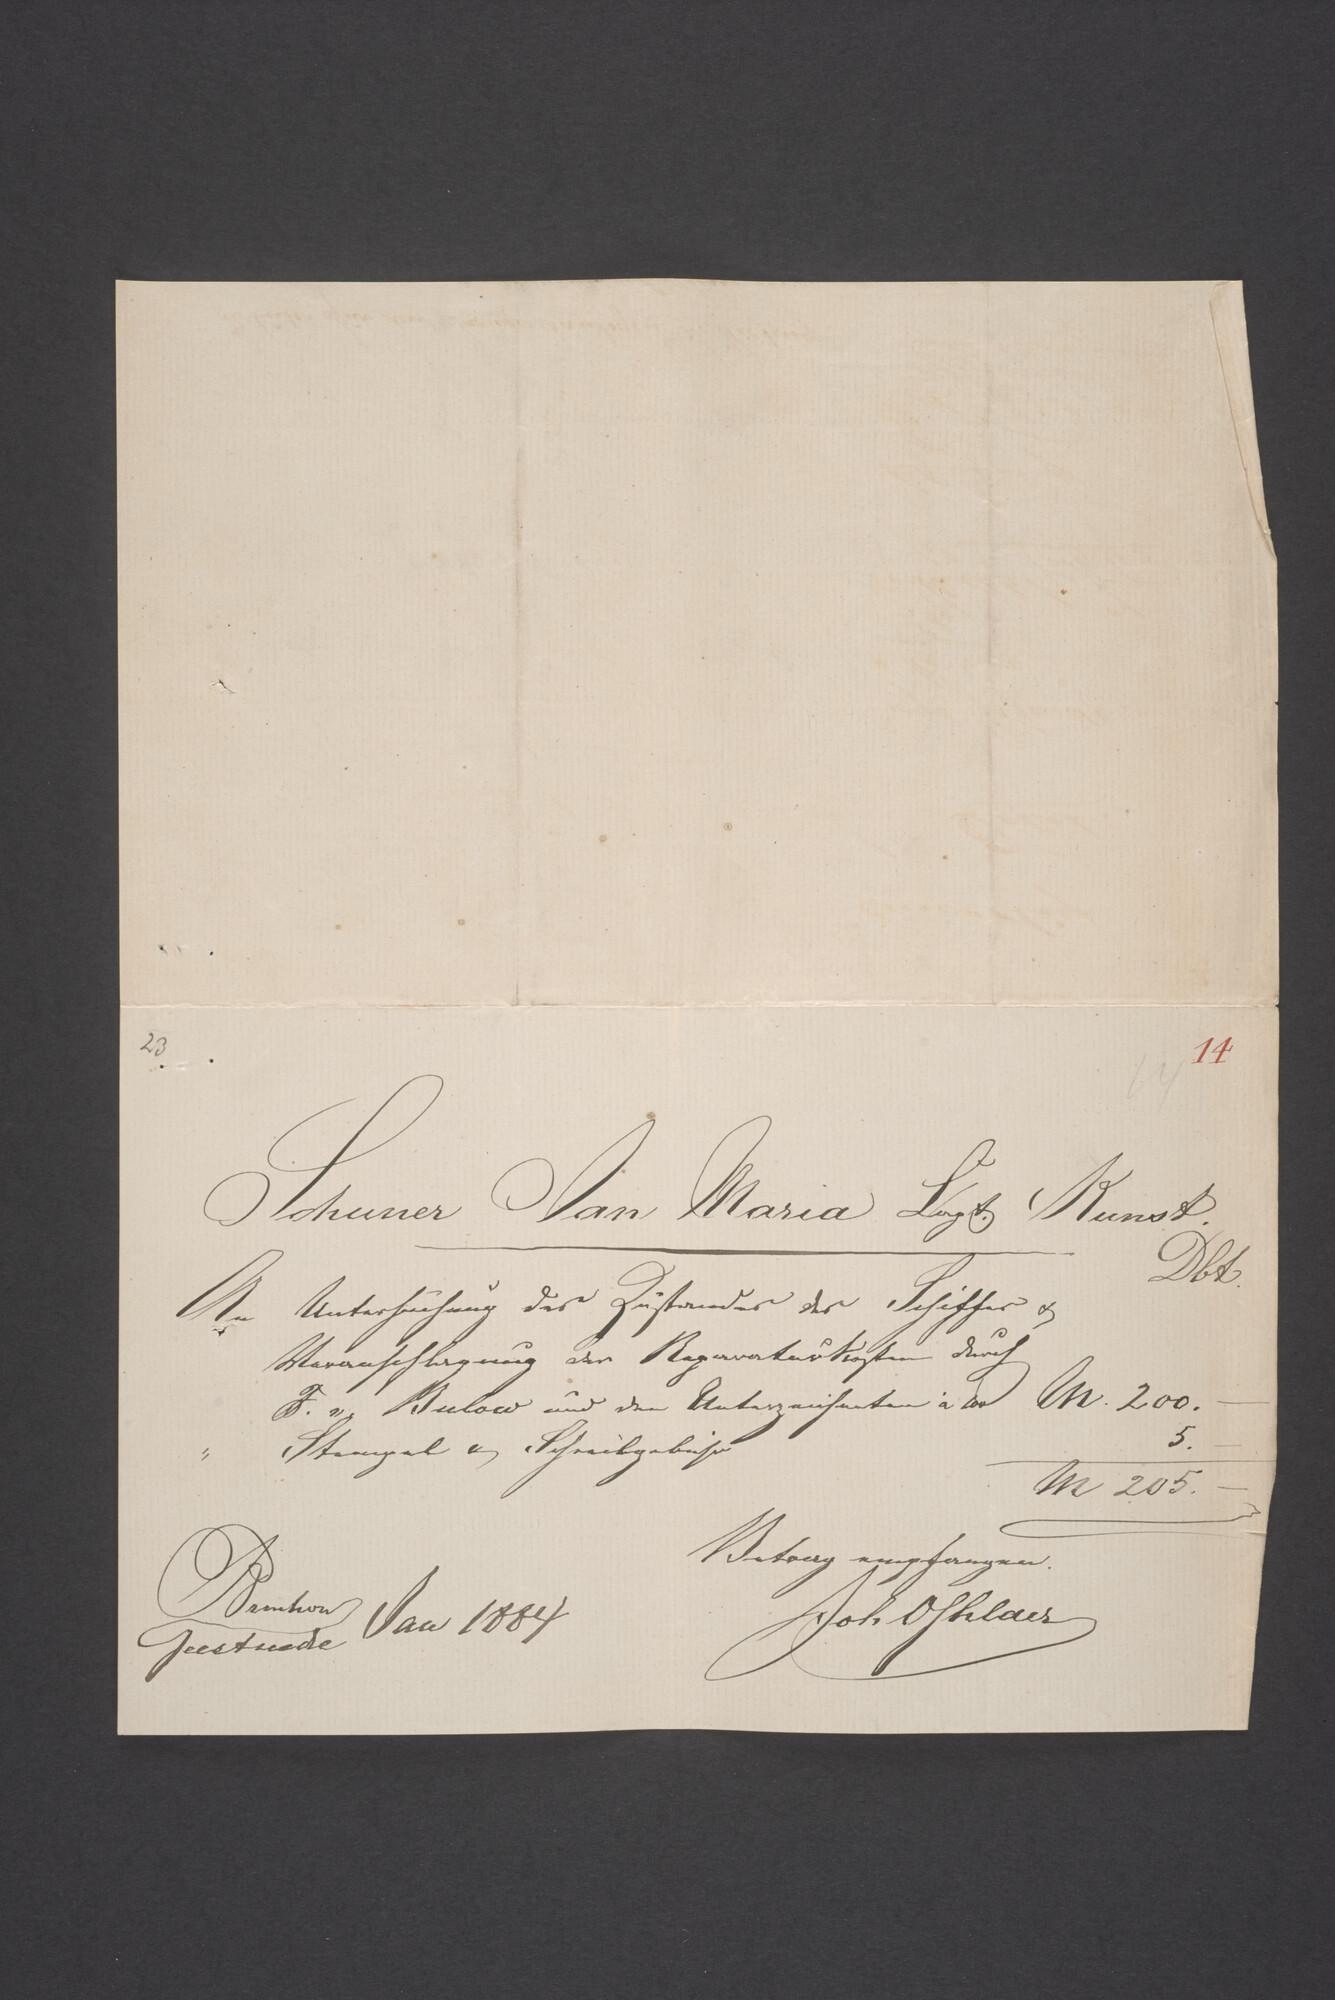 23
14
14
Schuner Jan Maria Capt. Kunst.
Dbt.
An Untersuchung des Zustandes des Schiffes &
Veranschlagung der Reparaturkosten durch
F. v. Bulow und den Unterzeichneten à 100 M. 200. —
" Stempel & Schreibgebühr 5. —
M 205. —
Betrag empfangen.
Joh
Bremhvn
Geestmde Jan 1884